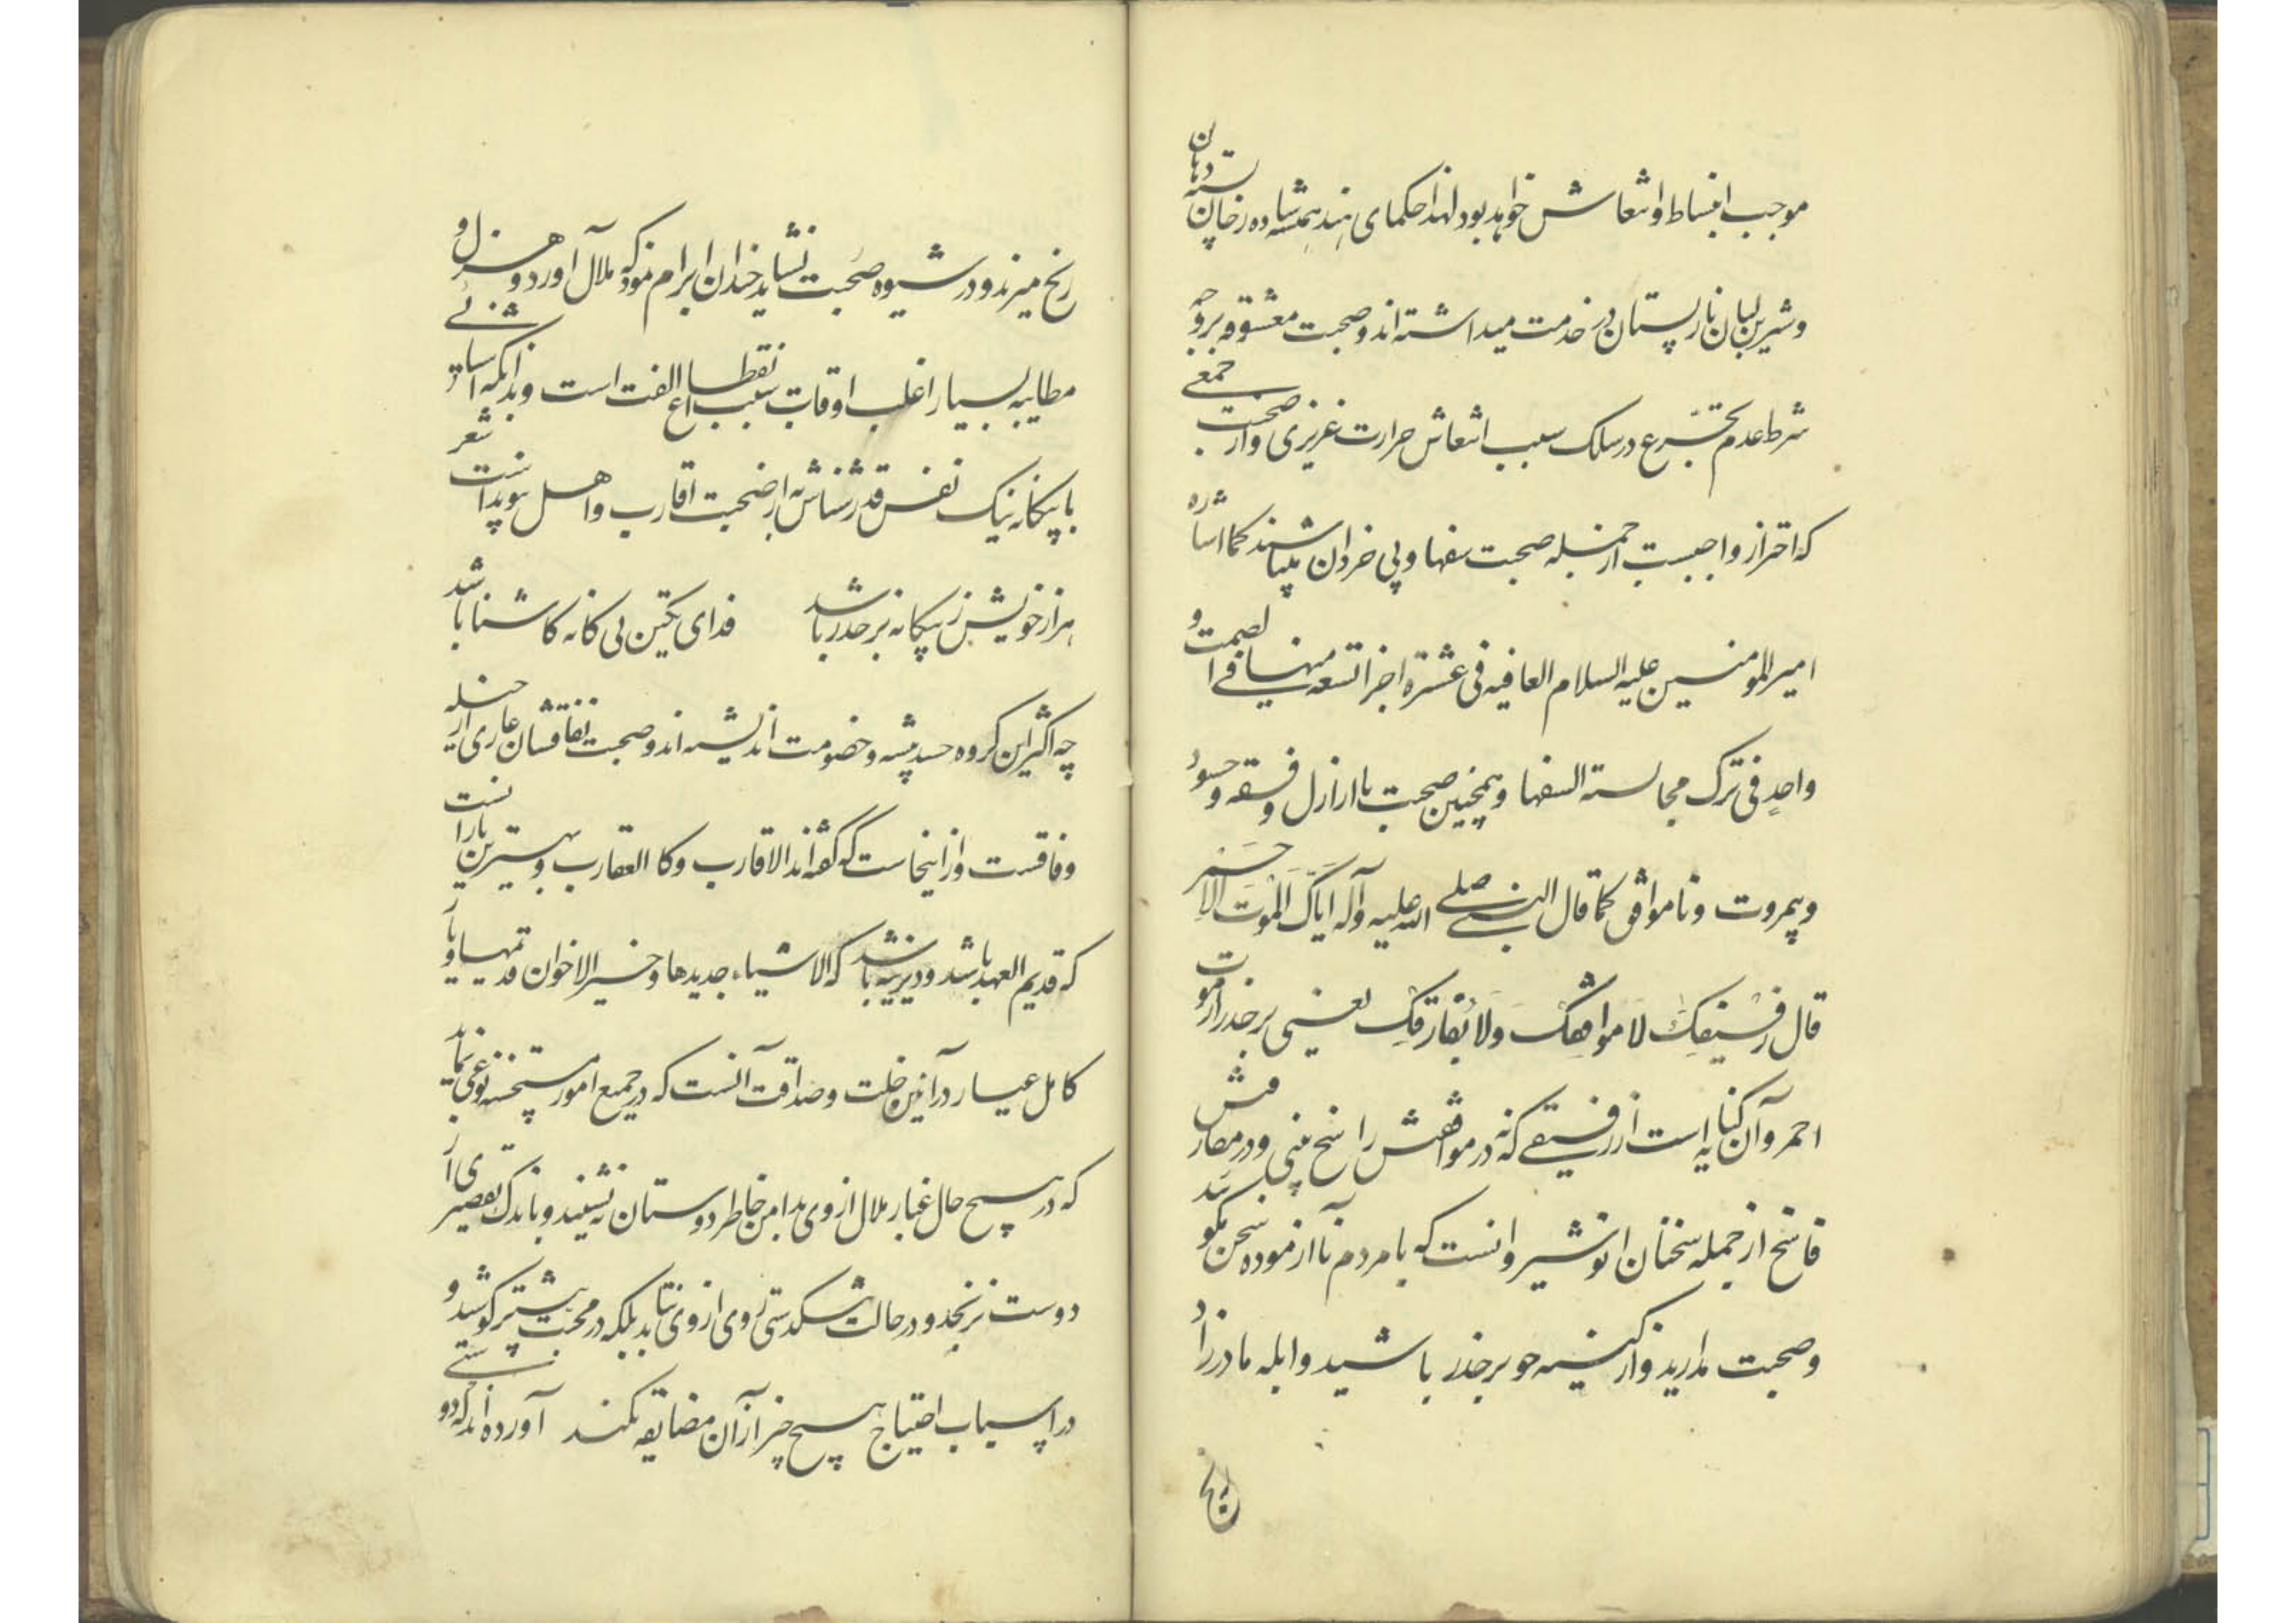 موجب انبساط و انتعاش خواهد بود لهذا حکمای هند همیشه ساده رخان پسته دهان
و شیرین لبان نارپستان در خدمت میداشته اند و صحبت معشوقه بروجه
شرط عدم تجرع در سلک سبب انتعاش حرارت غریزی و از صحبت جمعی
که احتراز واجبست از جمله صحبت سفها و بی خردان میباشند کما اشاره
امیر المومنین علیه السلام العافیه فی عشرة اجزا تسعه منها فی الصمت و
واحد فی ترک مجالسته السفها و همچنین صحبت با ارازل و فسقه و حسود
و بیمروت و ناموافق کما قال النبی صلی الله علیه و آله ایاک الموت الاحمر
قال رفیقک لا موافقک ولا یفارقک یعنی بر حذر از موت
احمر و آن کنایه است از رفیقی که نه در موافقتش راسخ بینی و در مفارقتش
فاسخ از جمله سخنان انوشیروانست که با مردم ناآزموده سخن مگویید
و صحبت مدارید و از کینه جو بر حذر باشید و ابله مادرزاد
رنج
رنج میرند و در شیوه صحبت نشاید چندان ابرام نمود که ملال آورد و هزل و
مطایبه بسیار اغلب اوقات سبب انقطاع الفت است و بدانکه آشنائی
با بیگانه نیک نفس قدرشناس به از صحبت اقارب و اهل پیوند است شعر
هزار خویش ز بیگانه بر حذر باشد فدای یکتن بی کانه کاشنا باشد
چه اکثر این گروه حسد پیشه و خصومت اندیشه اند و صحبت نفاقشان عاری از حلیه
وفاقست و از اینجاست که گفته اند الاقارب و کا العقارب و بهترین یارانست
که قدیم العهد باشد و دیرینه باشد که الاشیاء جدیدها و خیر الاخوان قدیمها و یار
کامل عیار در آئین خلت و صداقت آنست که در جمیع امور مستحسنه نوعی نماید
که در هیچ حال غبار ملال از وی بدامن خاطر دوستان ننشیند و باندک تقصیری از
دوست نرنجد و در حالت تنگدستی روی از وی نتابد بلکه در محبت بیشتر کوشد و
در اسباب احتیاج هیچ چیز از آن مضایقه نکند آورده اند که دو